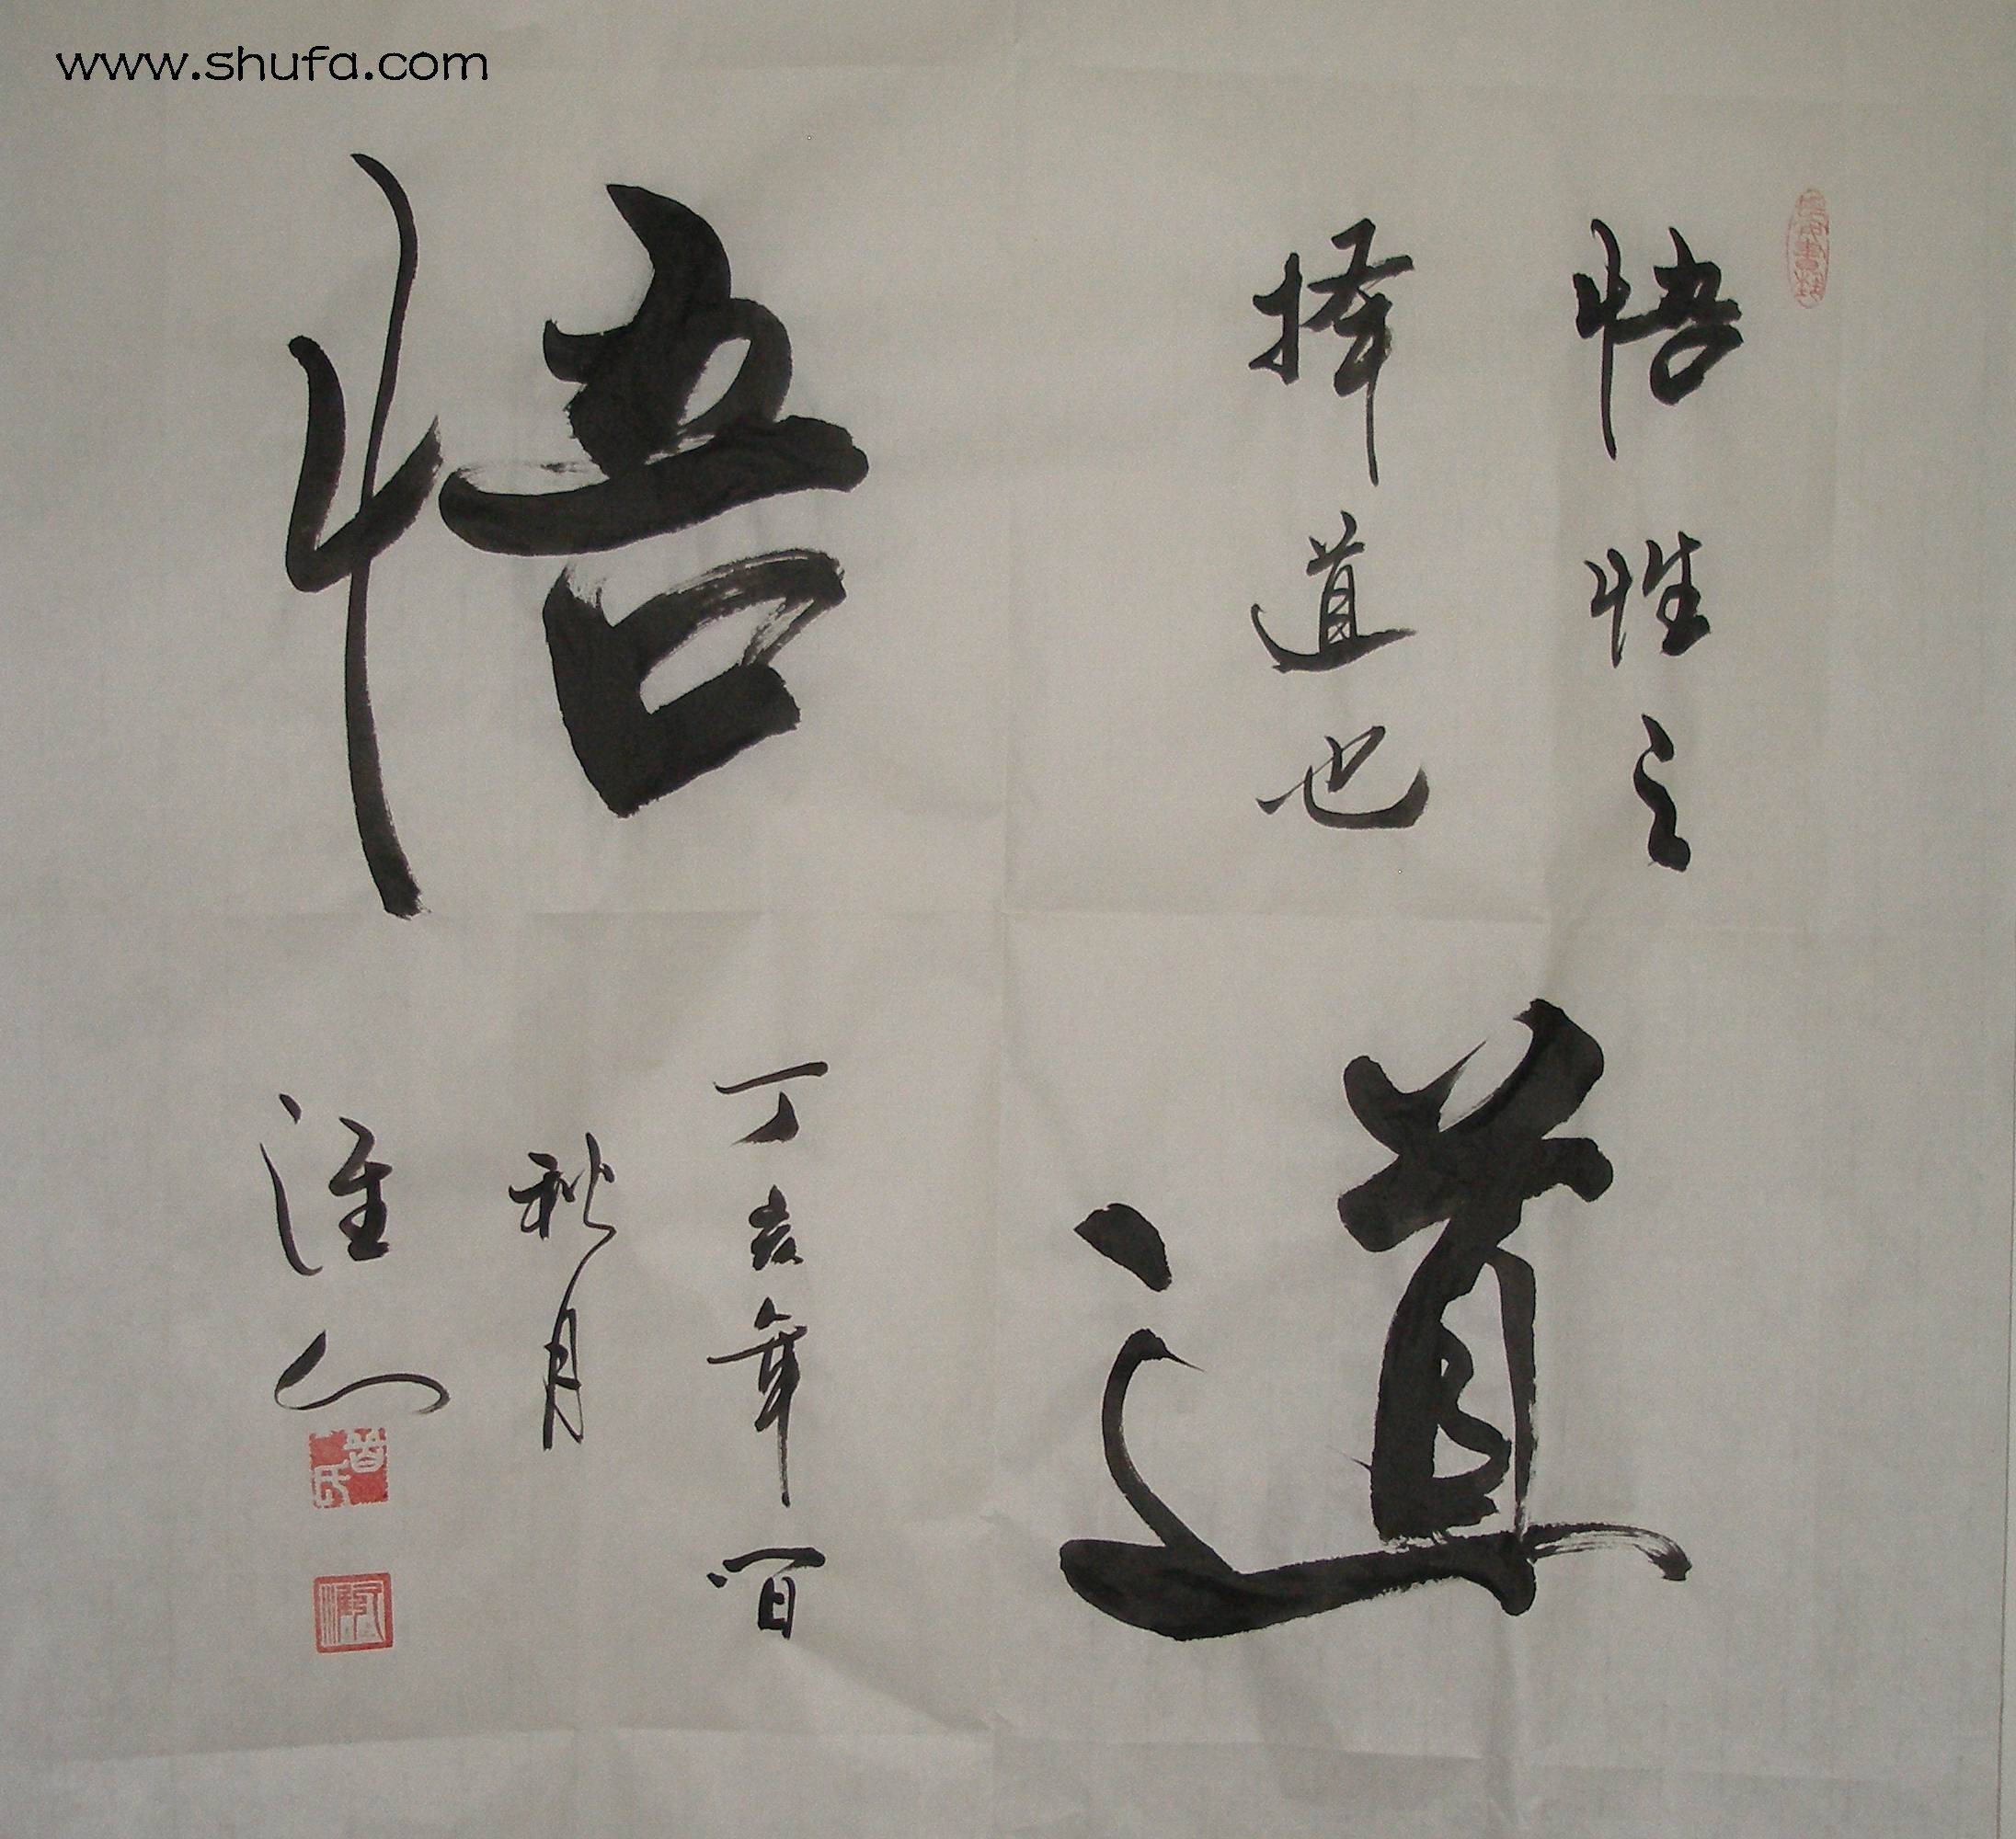 www.shufa.com
悟性之
择道也
道
悟
丁亥年
秋月
淮
曾氏